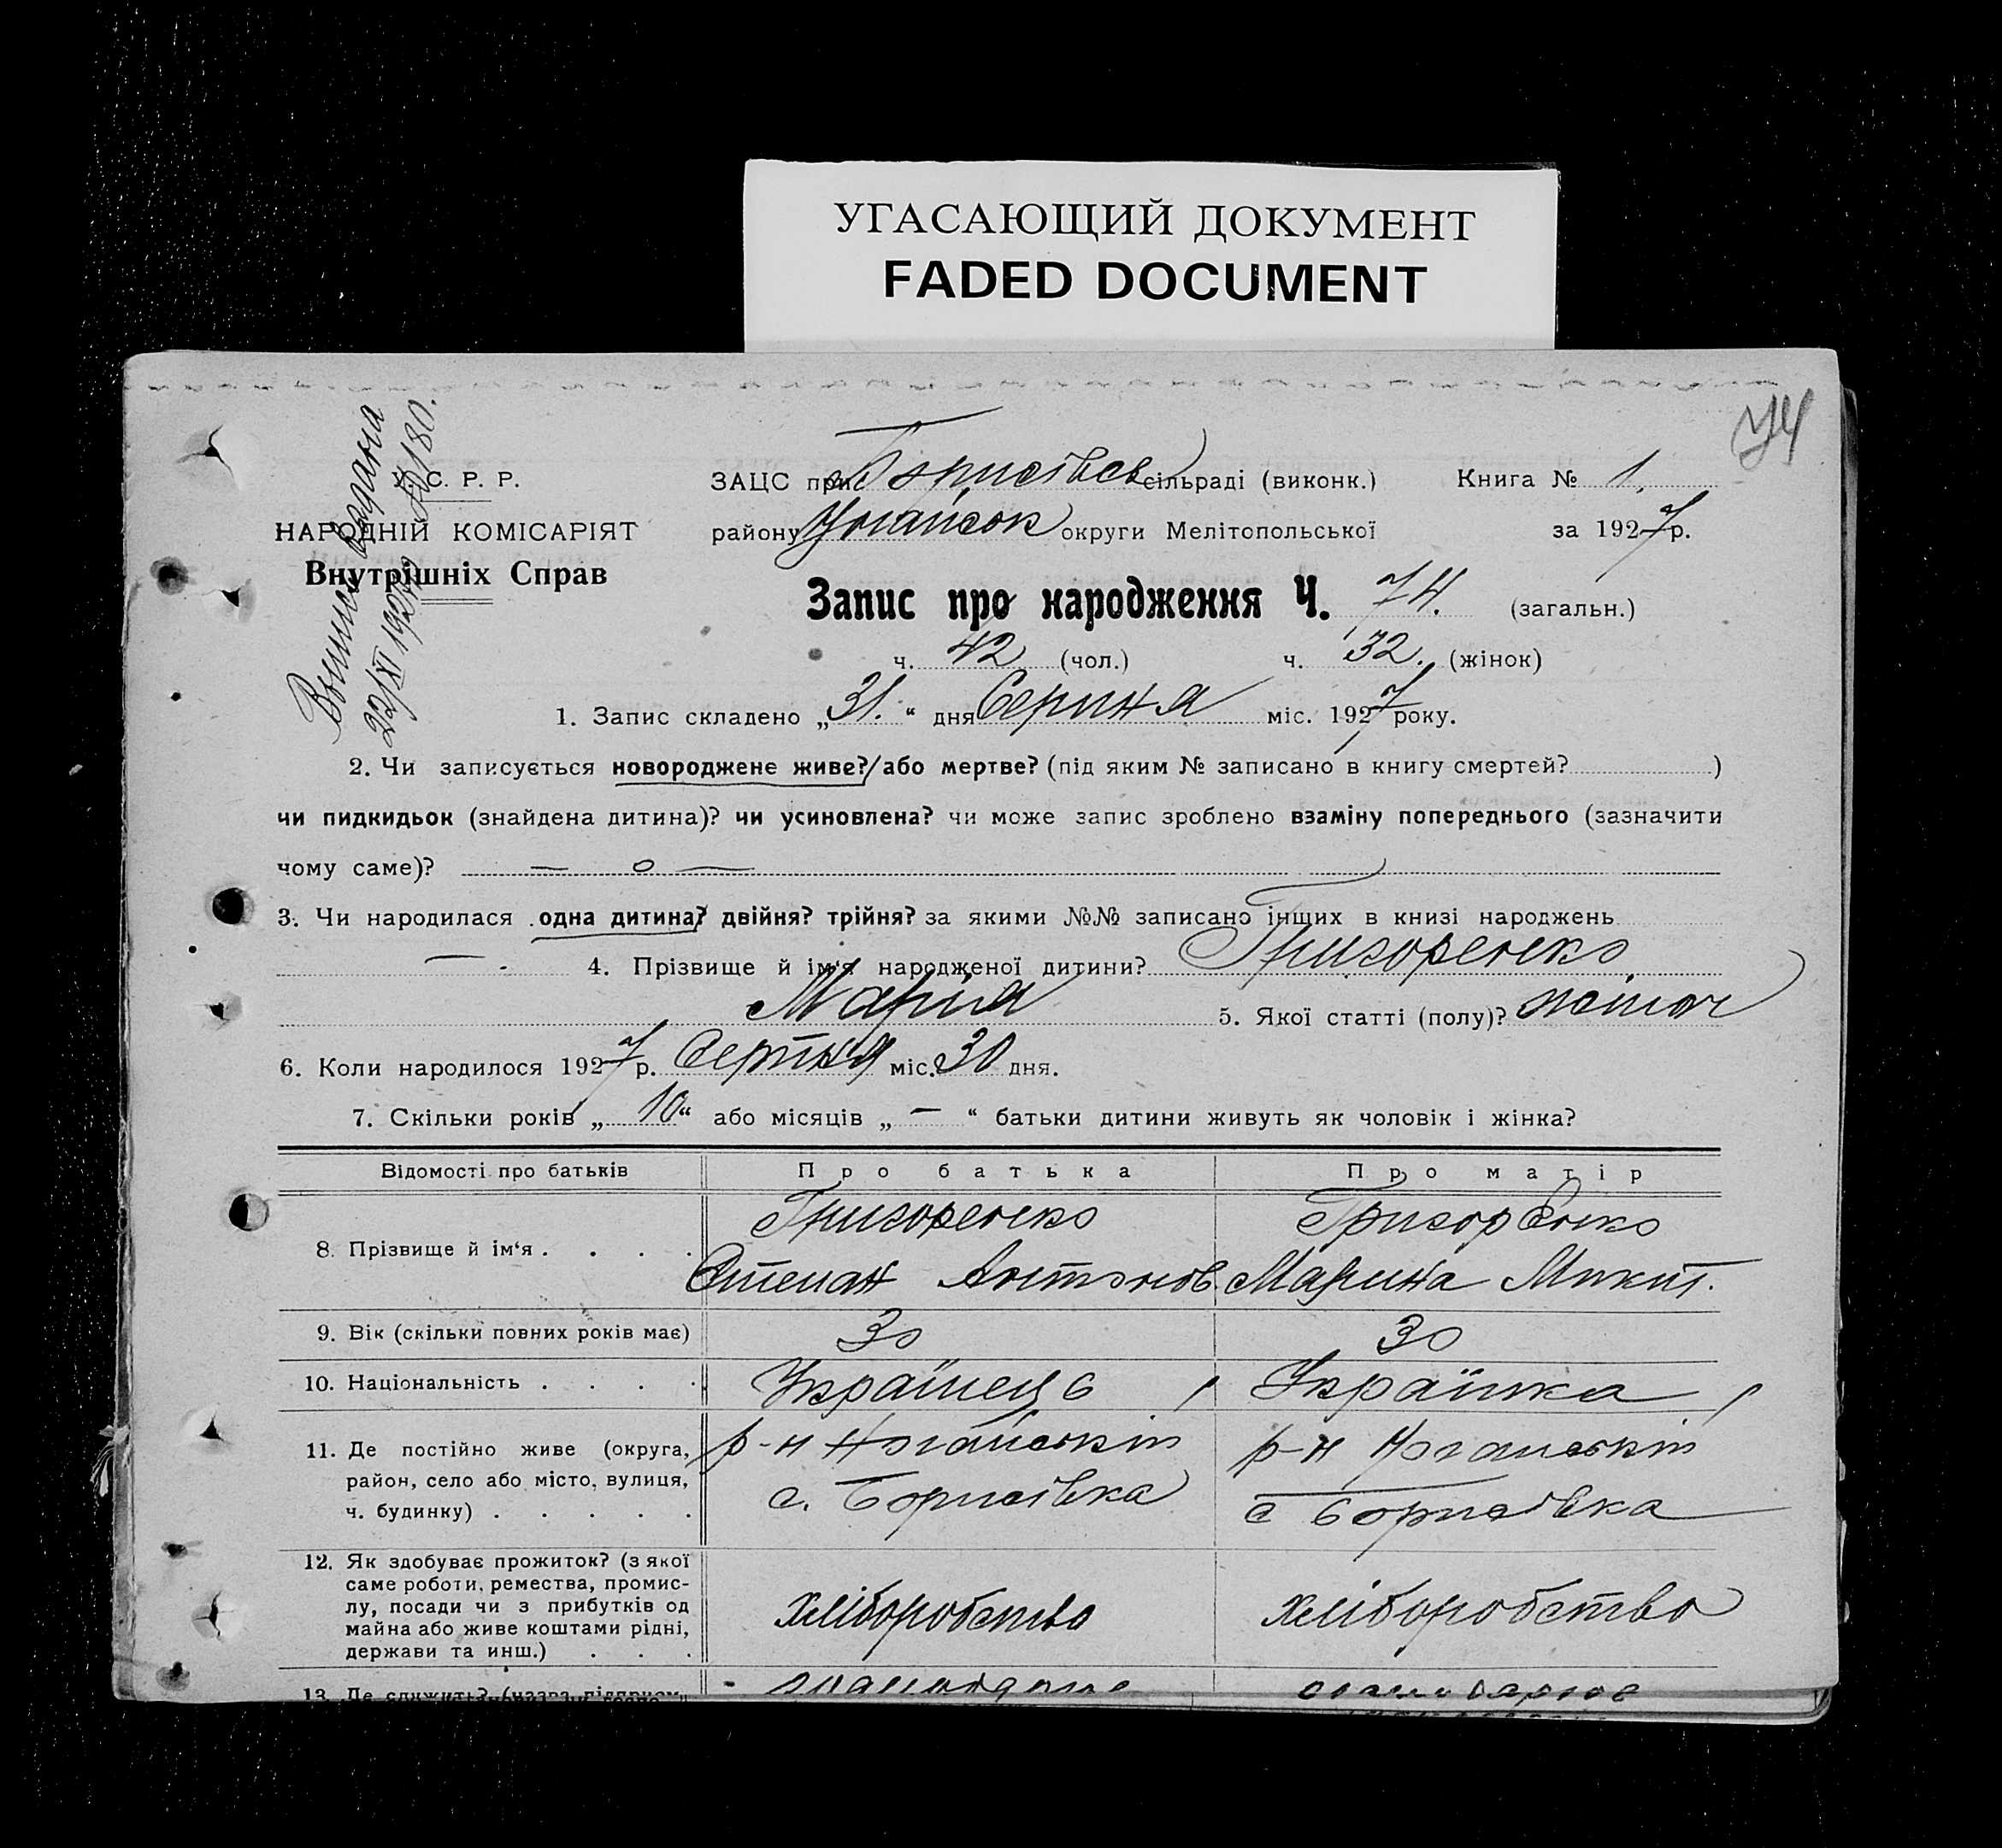 УГАСАЮЩИЙ ДОКУМЕНТ
FADED DOCUMENT
74
Випись видана
22/XI 1927 р № 180.
У. С. Р. Р.
НАРОДНІЙ КОМІСАРІЯТ
Внутрішніх Справ
ЗАЦС при Борисівск сільраді (виконк.) Книга № 1.
району округи Мелітопольської за 1927 р.
Запис про народження Ч. 74. (загальн.)
ч. 42 (чол.) ч. 32. (жінок)
1. Запис складено „31.“ дня Серпня міс. 1927 року.
2. Чи записується новороджене живе?/або мертве? (під яким № записано в книгу смертей? )
чи пидкидьок (знайдена дитина)? чи усиновлена? чи може запис зроблено взаміну попереднього (зазначити
чому саме)? — о —
3. Чи народилася одна дитина? двійня? трійня? за якими №№ записано інщих в книзі народжень
— . 4. Прізвище й ім‘я народженої дитини? Григоренко
Марія 5. Якої статті (полу)? жіноч
6. Коли народилося 1927 р. Серпня міс. 30 дня.
7. Скільки років „10“ або місяців „—“ батьки дитини живуть як чоловік і жінка?
Відомості про батьків Про батька Про матір
8. Прізвище й ім‘я . . . . Григоренко Григоренко
Степан Антонов. Марина Микит.
9. Вік (скільки повних років має) 30 30
10. Національність . . . . Українець Українка
11. Де постійно живе (округа, р-н Ногайський р-н Ногайський
район, село або місто, вулиця, с. Борисівка с Борисівка
ч. будинку) . . . . .
12. Як здобуває прожиток? (з якої
саме роботи, ремества, промис-
лу, посади чи з прибутків од хліборобство хліборобство
майна або живе коштами рідні,
держави та инш.) . . .
13. Де служить? (назва підприєм-